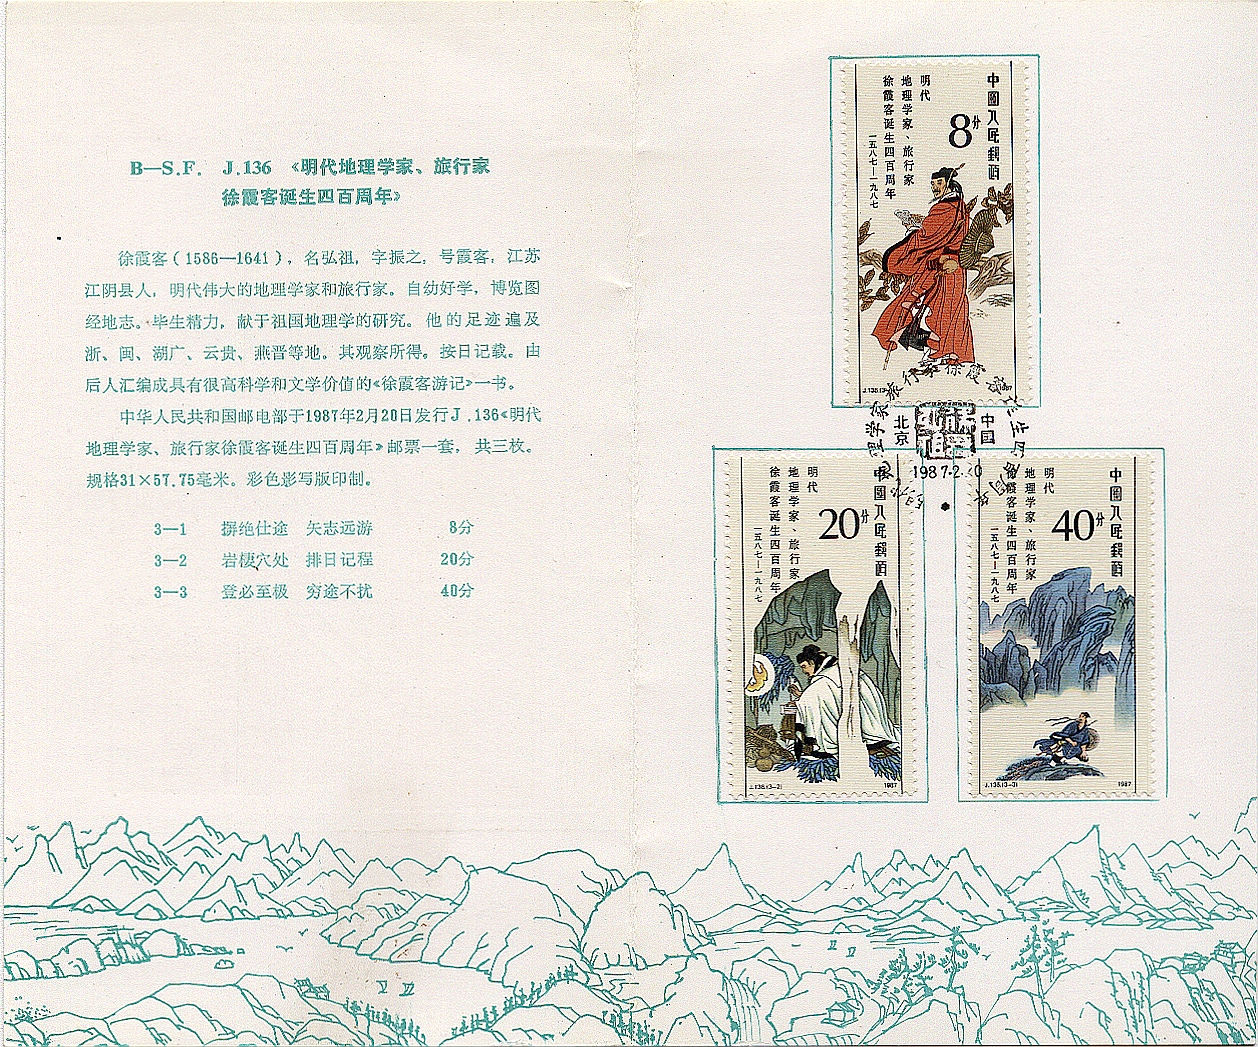 B—S.F. J.136 《明代地理学家、旅行家
徐霞客诞生四百周年》
徐霞客（1586—1641），名弘祖，字振之，号霞客，江苏
江阴县人，明代伟大的地理学家和旅行家。自幼好学，博览图
经地志。毕生精力，献于祖国地理学的研究。他的足迹遍及
浙、闽、湖广、云贵、燕晋等地。其观察所得。按日记载。由
后人汇编成具有很高科学和文学价值的《徐霞客游记》一书。
中华人民共和国邮电部于1987年2月20日发行J.136《明代
地理学家、旅行家徐霞客诞生四百周年》邮票一套，共三枚。
规格31×57.75毫米。彩色影写版印制。
3—1 摒绝仕途 矢志远游 8分
3—2 岩棲穴处 排日记程 20分
3—3 登必至极 穷途不扰 40分
中国人民邮政
8分
明代
地理学家、旅行家
徐霞客诞生四百周年
一五八七—一九八七
北京
中国
1987.2.20
中国人民邮政
20分
明代
地理学家、旅行家
徐霞客诞生四百周年
一五八七—一九八七
J.136.(3-2)
1987
中国人民邮政
40分
明代
地理学家、旅行家
徐霞客诞生四百周年
一五八七—一九八七
J.136.(3-3)
1987